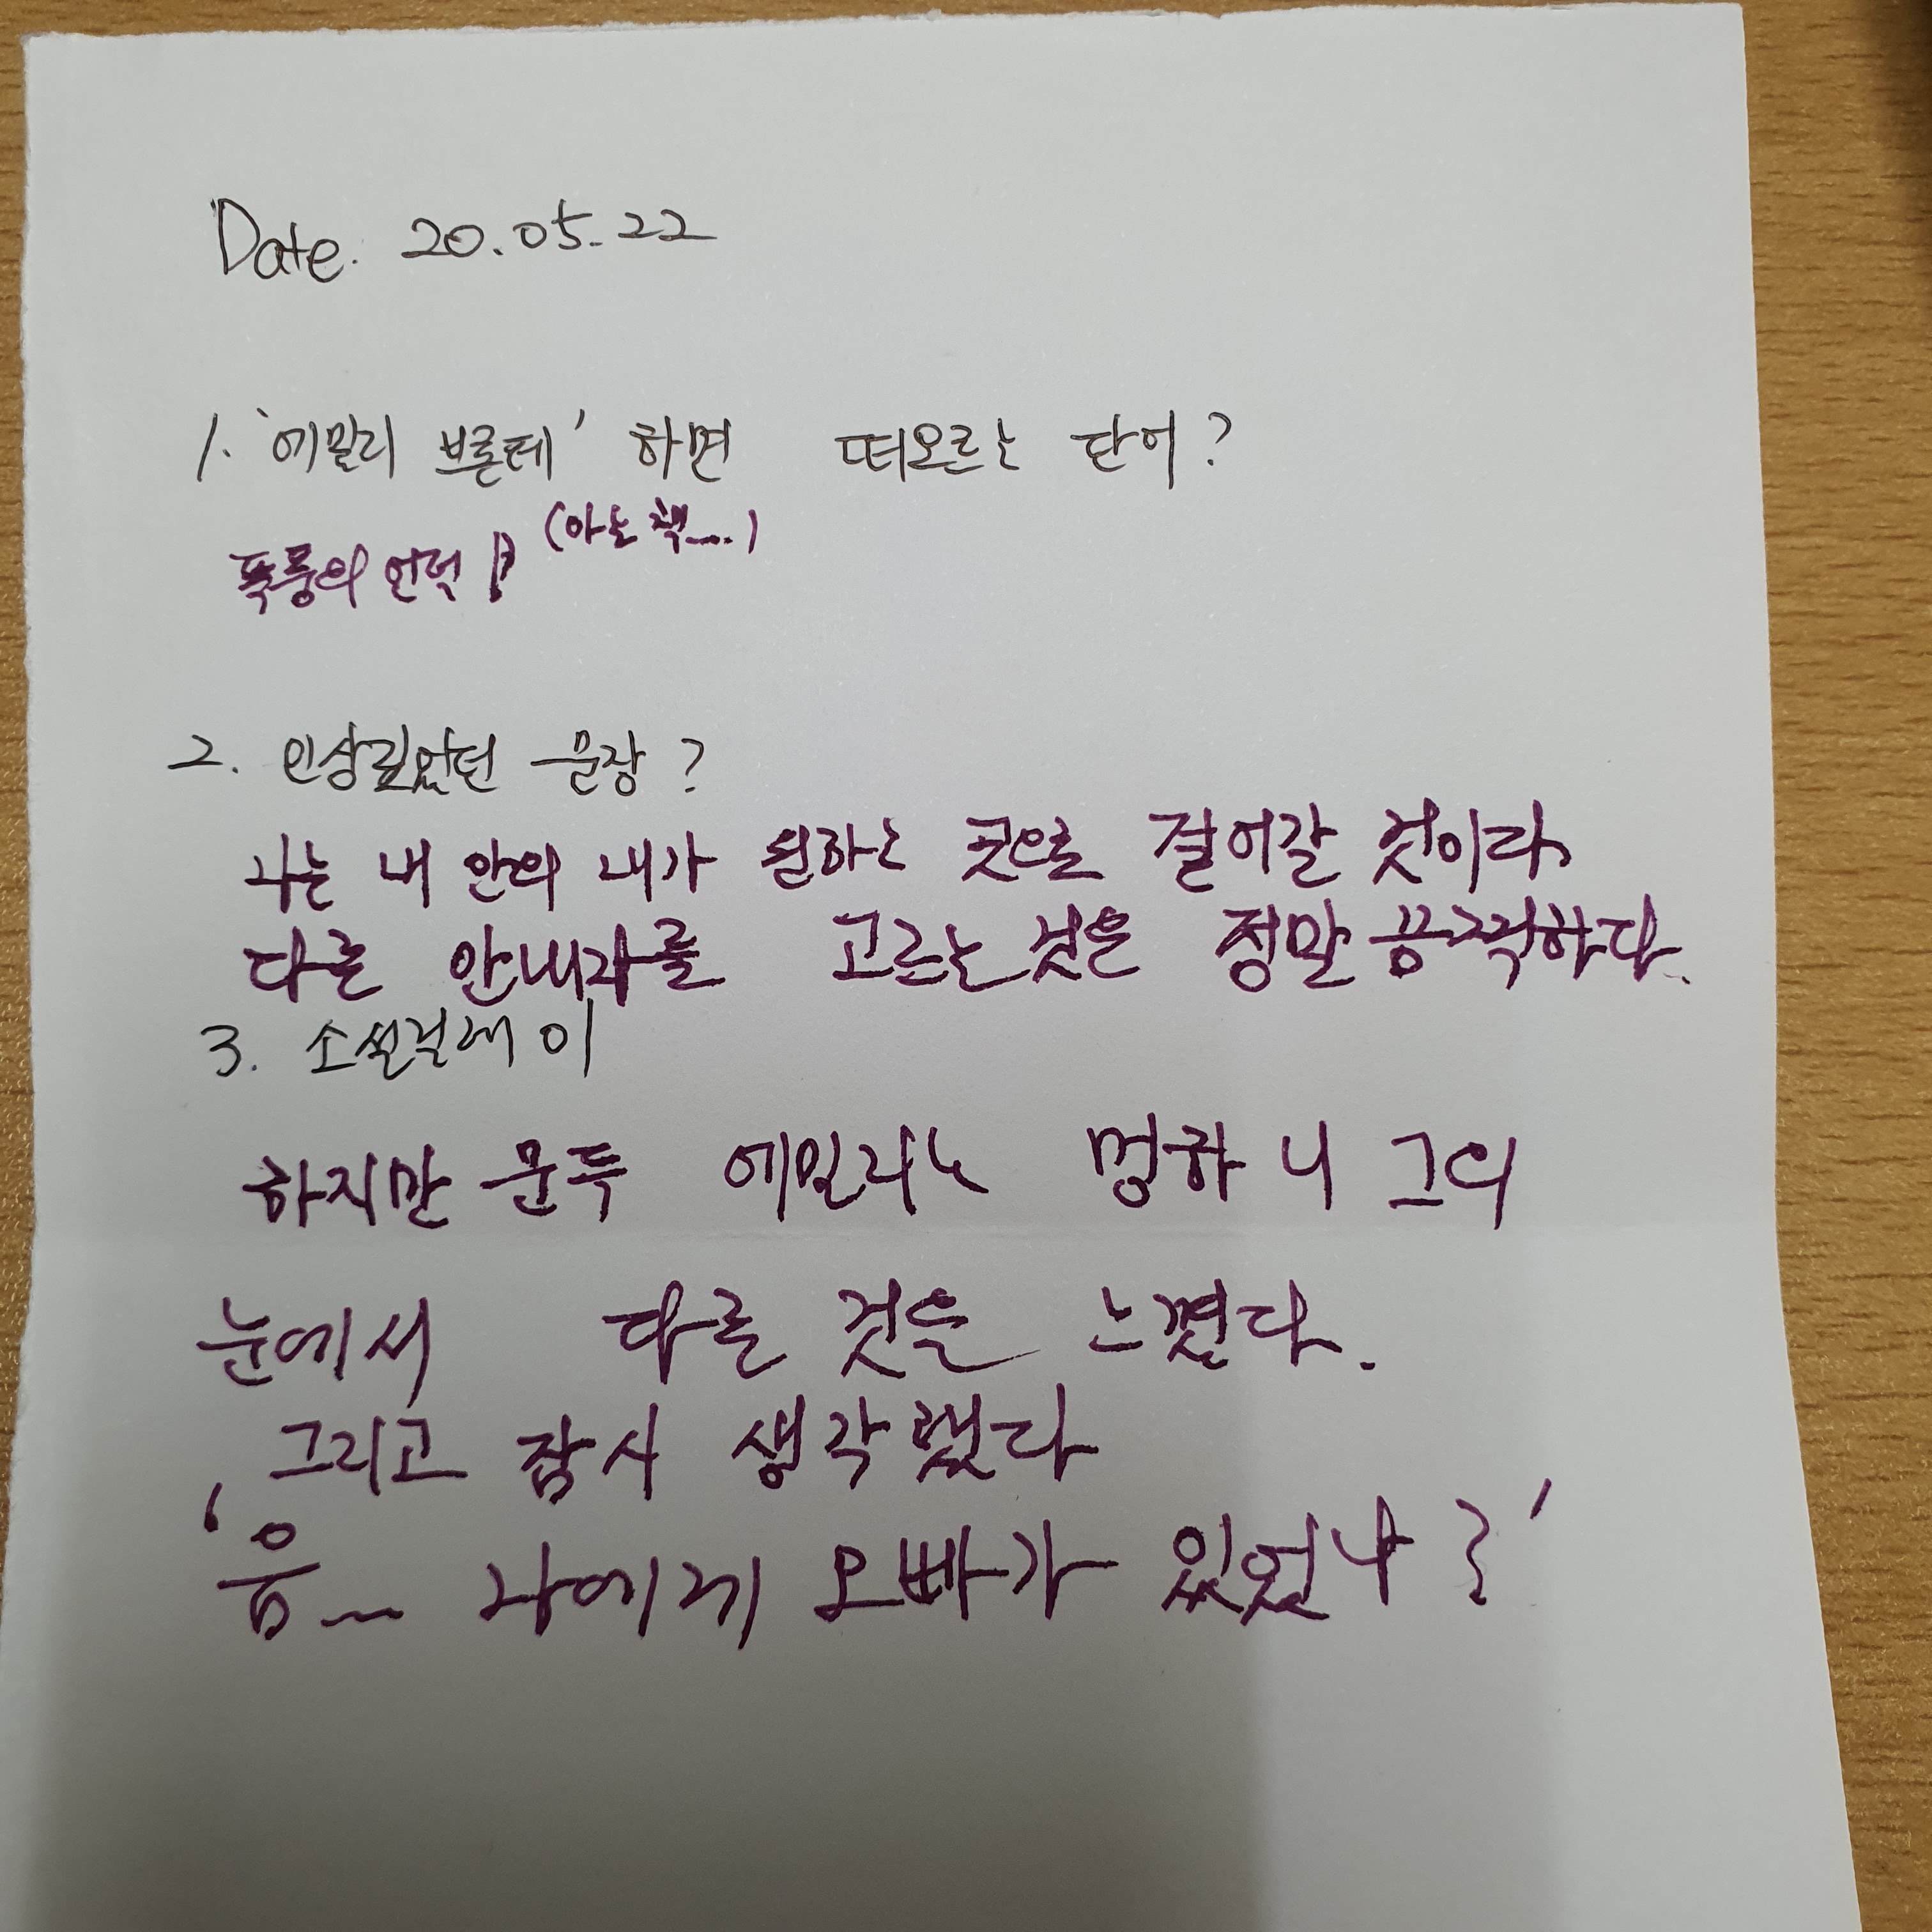 Date. 20.05.22
1. '에밀리 브론테' 하면 떠오르는 단어?
(아는 책....)
폭풍의 언덕!?
2. 인상깊었던 문장?
나는 내 안의 내가 원하는 곳으로 걸어갈 것이다.
다른 안내자를 고르는 것은 정말 끔찍하다.
3. 소설릴레이
하지만 문득 에밀리는 멍하니 그의
눈에서 다른 것을 느꼈다.
그리고 잠시 생각했다
'음... 나에게 오빠가 있었나?'